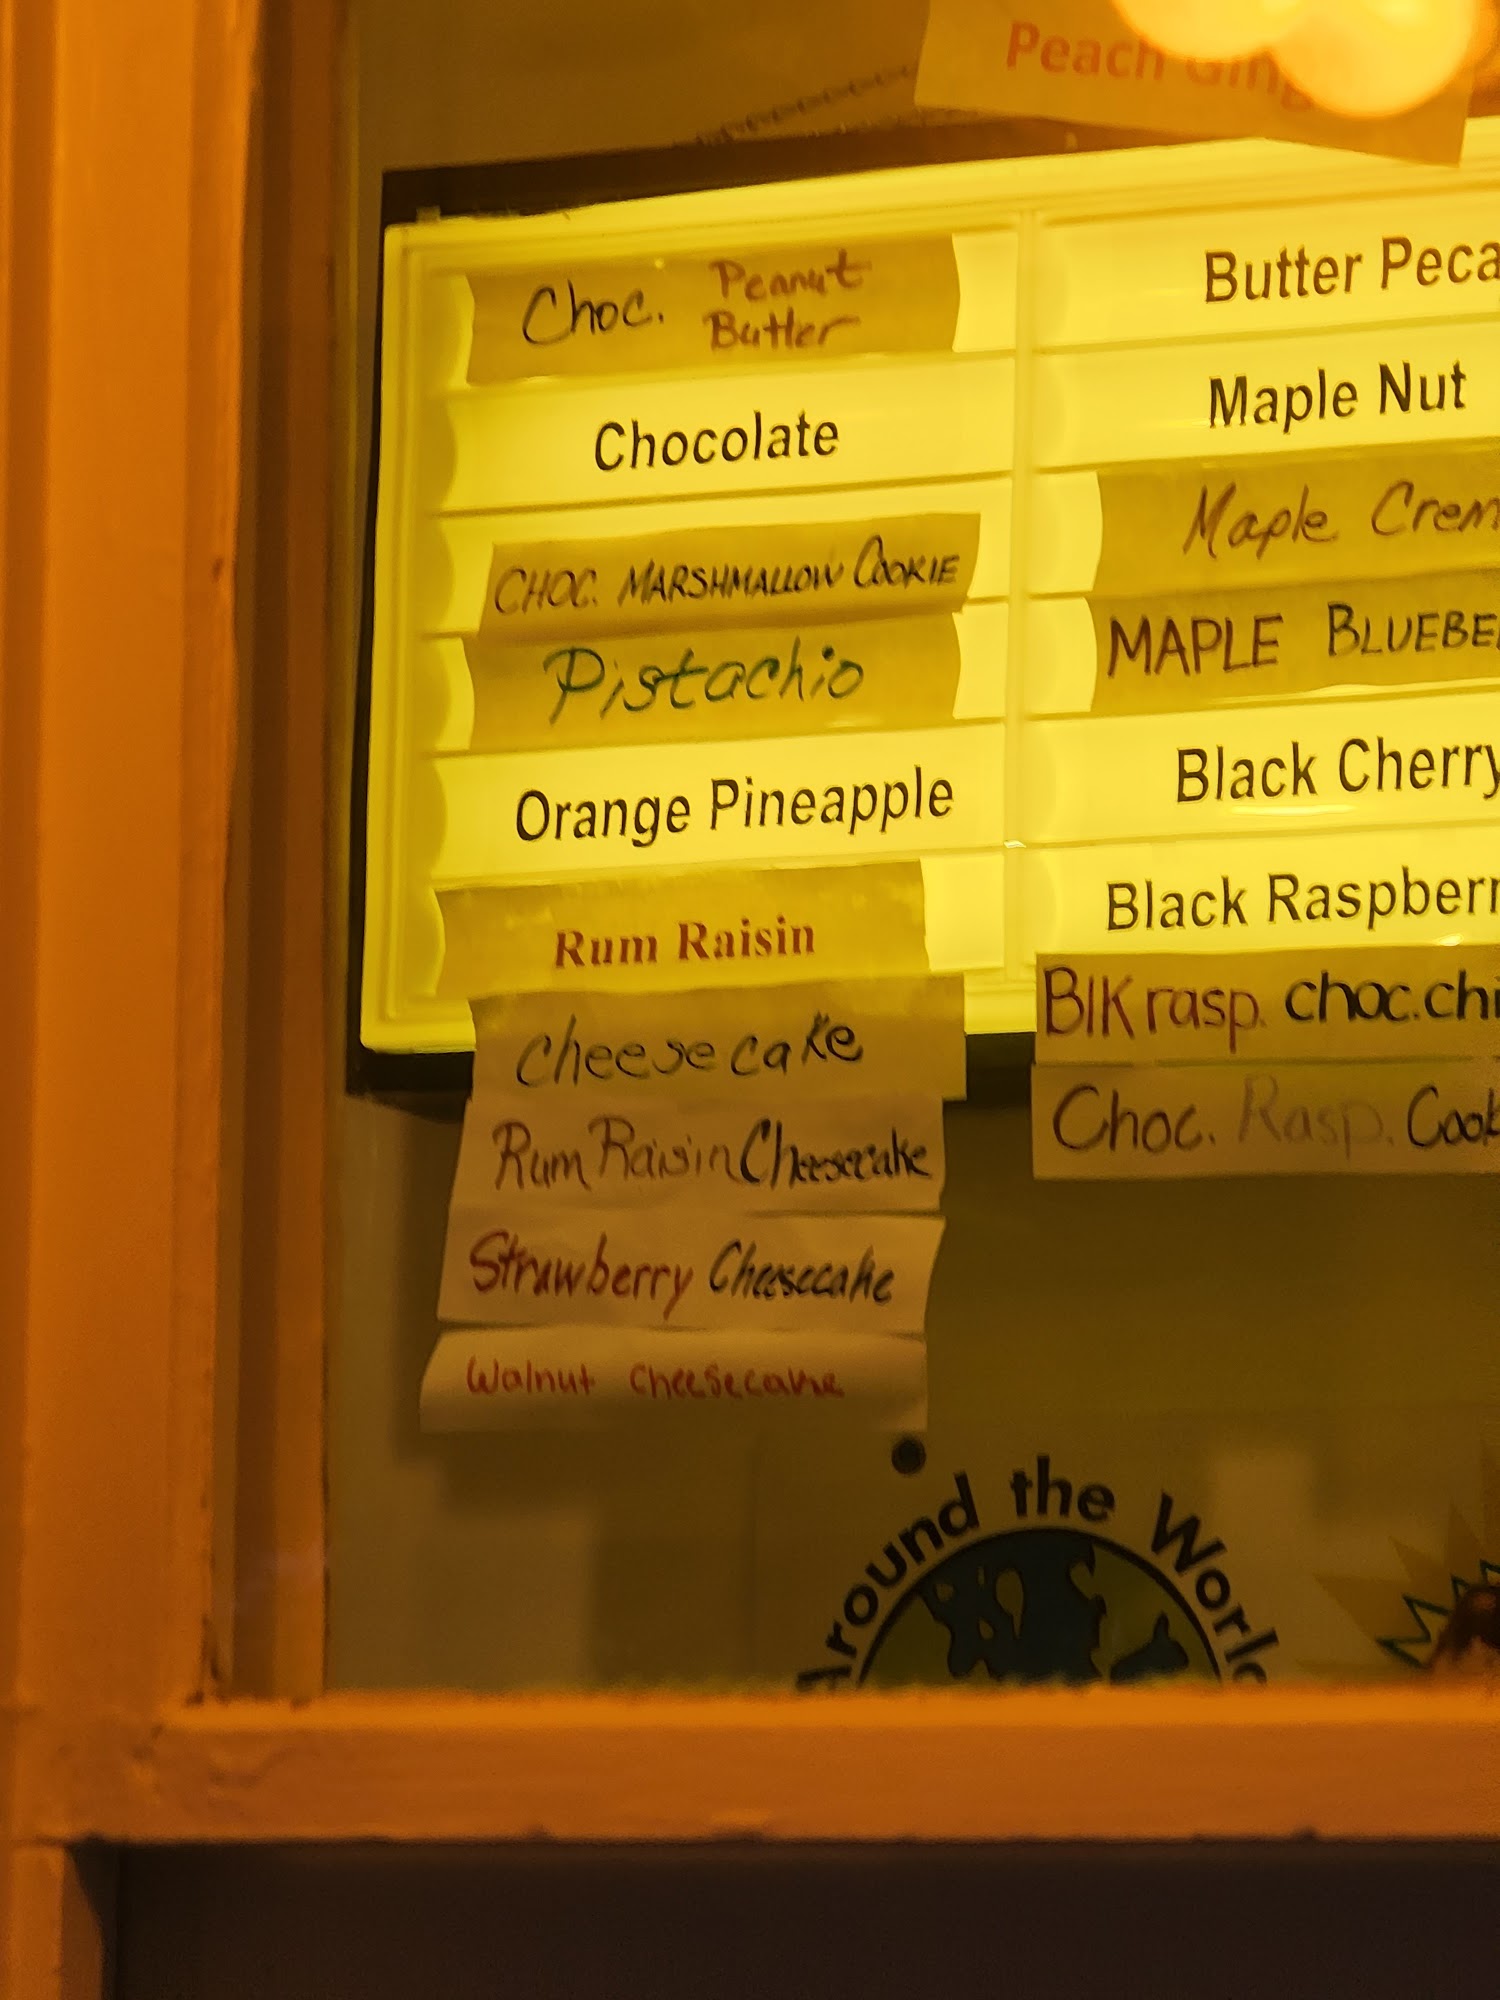 Peach Ging
Choc. Peanut
Butter
Chocolate
CHOC. MARSHMALLOW COOKIE
Pistachio
Orange Pineapple
Rum Raisin
Cheesecake
Rum Raisin Cheesecake
Strawberry Cheesecake
Walnut Cheesecake
Butter Peca
Maple Nut
Maple Crem
MAPLE BLUEBE
Black Cherry
Black Raspberr
Blk rasp. choc.chi
Choc. Rasp. Cook
Around the World